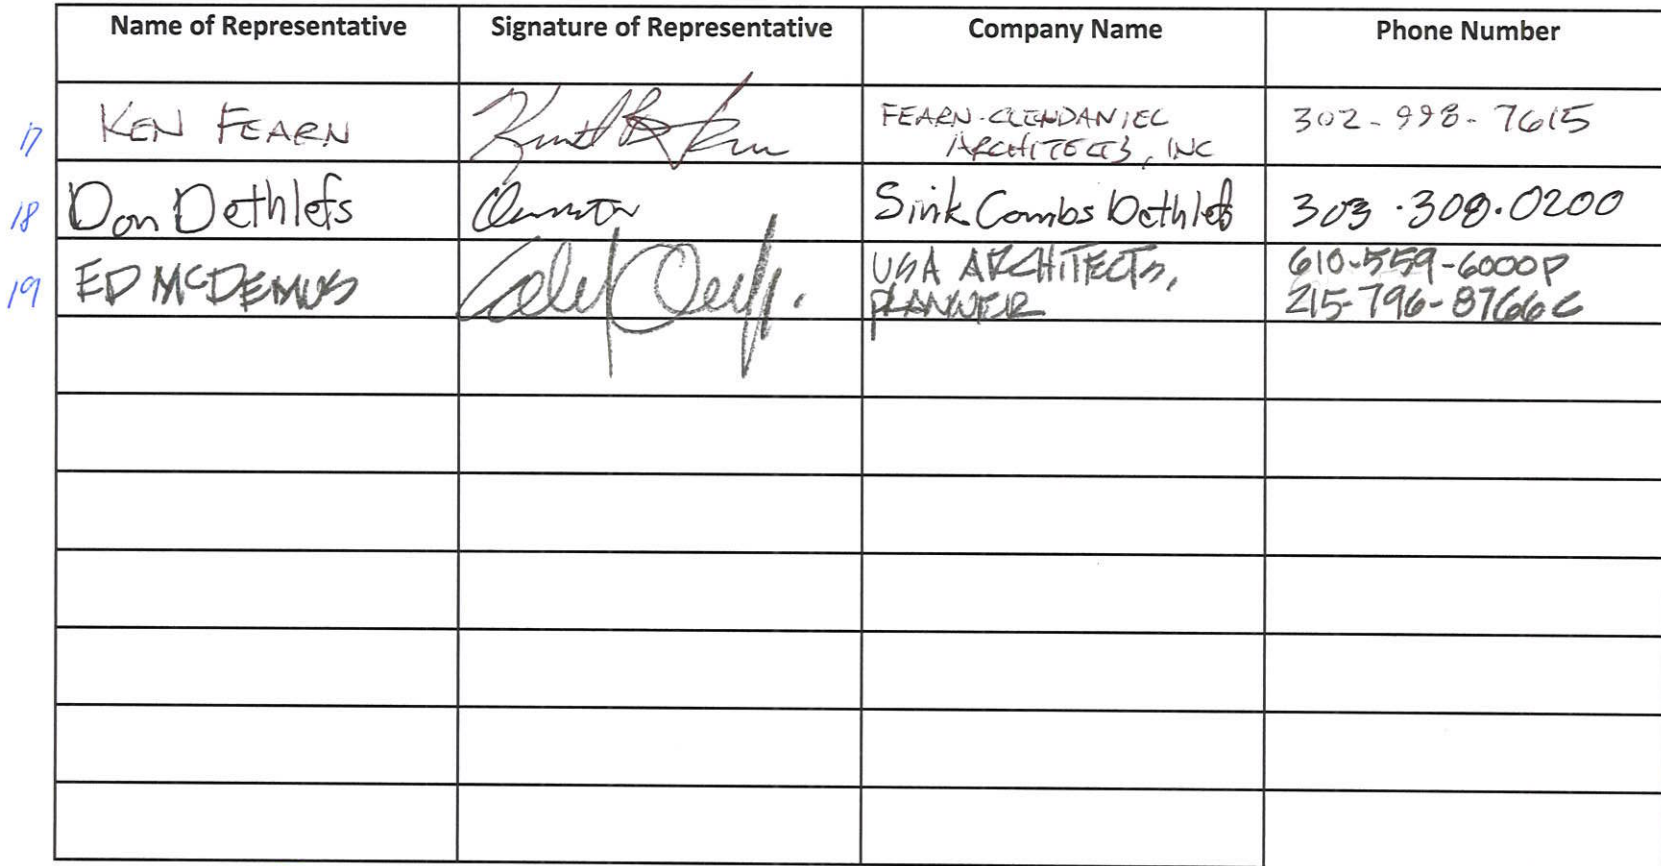 Name of Representative Signature of Representative Company Name Phone Number
17 KEN FEARN FEARN-CLENDANIEL 302-998-7615
ARCHITECTS, INC
18 Don Dethlefs Sink Combs Dethlefs 303.308.0200
19 ED MCDEMUS USA ARCHITECTS, 610-559-6000P
PLANNER 215-796-8766C